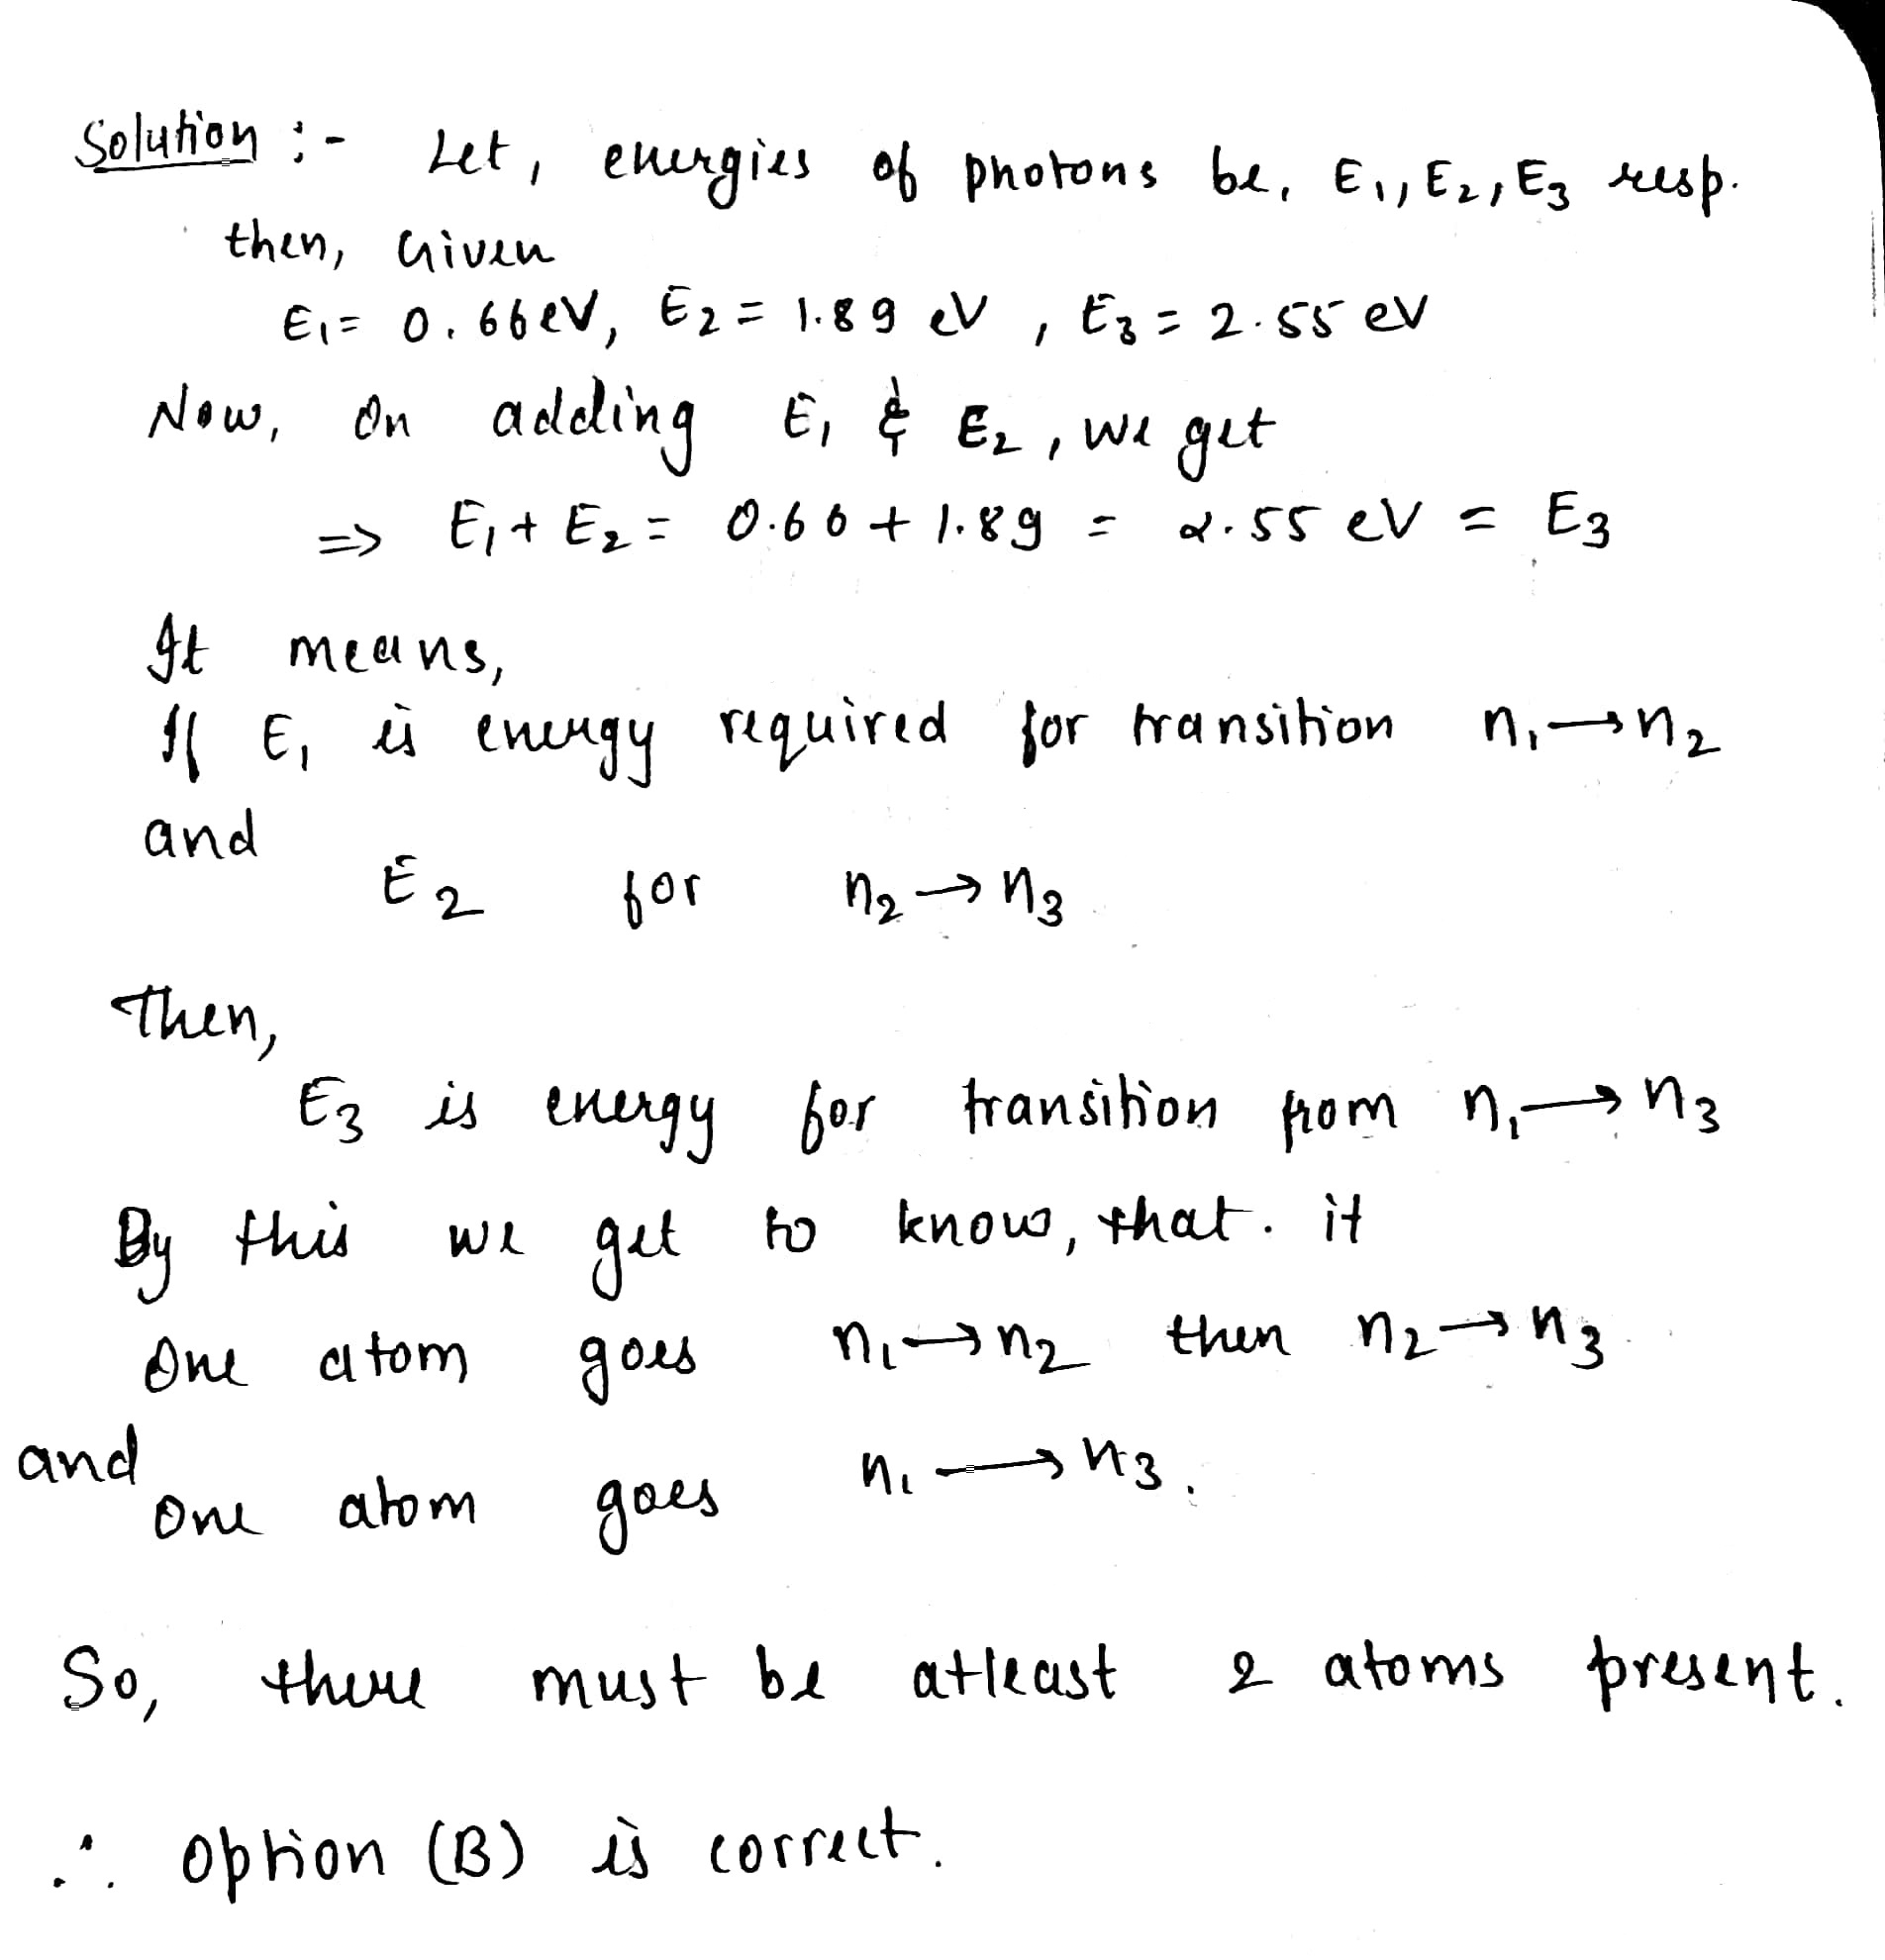 Solution :- Let, energies of photons be, E₁, E₂, E₃ resp.
then, Given
E₁ = 0.66 eV, E₂ = 1.89 eV , E₃ = 2.55 eV
Now, On adding E₁ & E₂, we get
⇒ E₁ + E₂ = 0.66 + 1.89 = 2.55 eV = E₃
It means,
If E₁ is energy required for transition n₁ → n₂
and
E₂ for n₂ → n₃
Then,
E₃ is energy for transition from n₁ → n₃
By this we get to know, that. it
One atom goes n₁ → n₂ then n₂ → n₃
and
One atom goes n₁ → n₃.
So, there must be atleast 2 atoms present.
∴ Option (B) is correct.